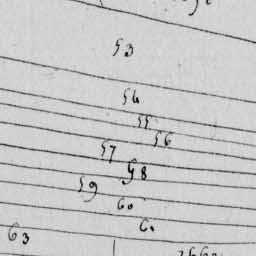 53
54
55
56
57
58
59
60
63